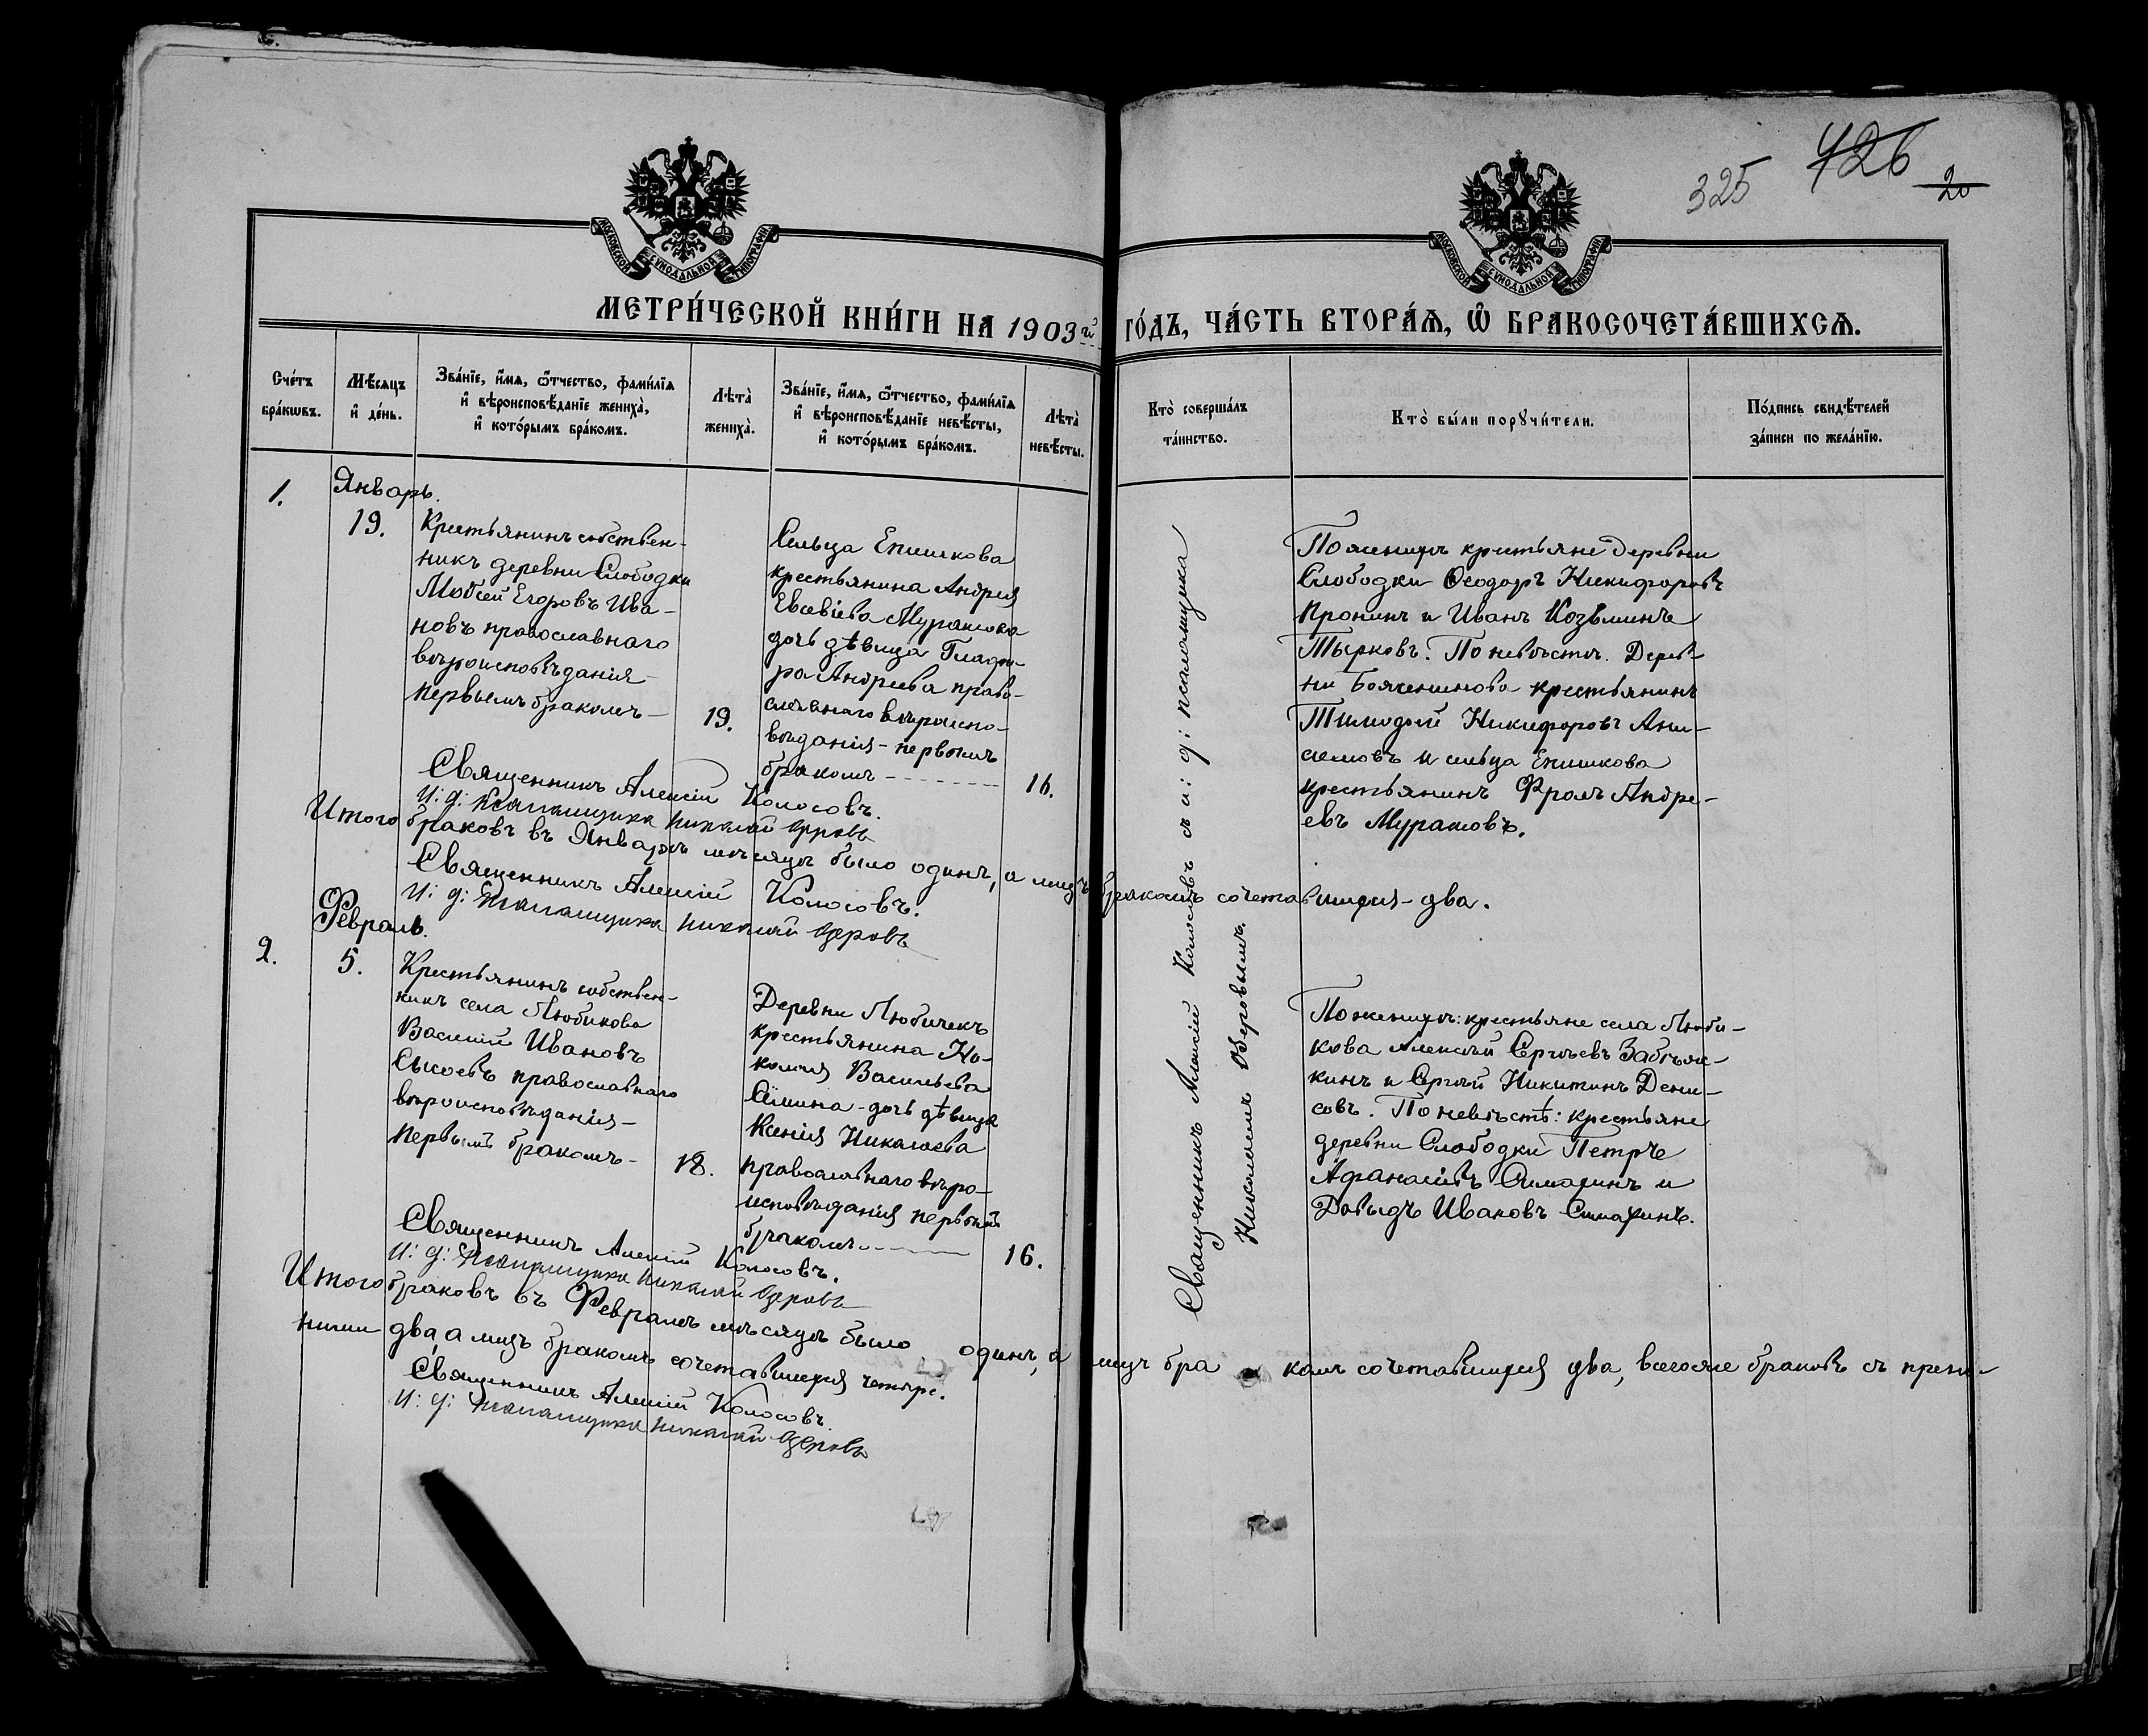 325 426 20
МОСКОВСКОЙ СѴНОДАЛЬНОЙ ТИПОГРАФІИ
МОСКОВСКОЙ СѴНОДАЛЬНОЙ ТИПОГРАФІИ
МЕТРИ́ЧЕСКОЙ КНИ́ГИ НА 1903й ГО́ДЪ, ЧА́СТЬ ВТОРА́Ѧ, Ѡ҆ БРАКОСОЧЕТА́ВШИХСѦ.
Сче́тъ
бра́кѡвъ.
Мѣ́сѧцъ
и҆ де́нь.
Зва́нїе, и҆́мѧ, ѻ҆́тчество, фами́лїѧ
и҆ вѣроисповѣ́данїе жениха̀,
и҆ кото́рымъ бра́комъ.
Лѣта̀
жениха̀.
Зва́нїе, и҆́мѧ, ѻ҆́тчество, фами́лїѧ
и҆ вѣроисповѣ́данїе невѣ́сты,
и҆ кото́рымъ бра́комъ.
Лѣта̀
невѣ́сты.
Кто̀ соверша́лъ
та́инство.
Кто̀ бы́ли порꙋчи́тели.
По́дпись свидѣ́телей
за́писи по жела́нїю.
1.
Январь.
19.
Крестьянинъ собствен-
никъ деревни Слободки
Мовсей Егоровъ Ива-
новъ православнаго
вѣроисповѣданія
первымъ бракомъ—
19.
Сельца Епишкова
крестьянина Андрея
Евсевіева Мурашова
дочь дѣвица Глафи-
ра Андреева право-
славнаго вѣроиспо-
вѣданія-первымъ
бракомъ
16.
Священникъ Алексій Колосовъ.
И: д: Псаломщика Николай Озеровъ
Священникъ Алексій Колосовъ съ и: д: псаломщика
Николаемъ Озеровымъ.
По женихѣ крестьяне деревни
Слободки Ѳеодоръ Никифоровъ
Пронинъ и Иванъ Козьминъ
Тырковъ. По невѣстѣ. Дерев-
ни Боженинова крестьянинъ
Тимофей Никифоровъ Ани-
симовъ и сельца Епишкова
крестьянинъ Фролъ Андре-
евъ Мурашовъ.
Итого браковъ въ Январѣ мѣсяцѣ было одинъ, а лицъ бракомъ сочетавшихся-два.
Священникъ Алексій Колосовъ.
И: д: Псаломщика Николай Озеровъ
Февраль.
2.
5.
Крестьянинъ собствен-
никъ села Любикова
Василій Ивановъ
Сысоевъ православнаго
вѣроисповѣданія-
первымъ бракомъ-
18.
Деревни Любичекъ
крестьянина Ни-
колая Васильева
дочь дѣвица
Ксенія Николаева
православнаго вѣро-
исповѣданія первымъ
бракомъ
16.
Священникъ Алексій Колосовъ.
И: д: Псаломщика Николай Озеровъ
По женихѣ: крестьяне села Люби-
кова Алексѣй Сергѣевъ
и Сергѣй Никитинъ Дени-
совъ. По невѣстѣ: крестьяне
деревни Слободки Петръ
Афанасьевъ Симахинъ и
Давыдъ Ивановъ Симахинъ.
Итого браковъ въ Февралѣ мѣсяцѣ было одинъ, а лицъ бракомъ сочетавшихся два, всегоже браковъ съ преж-
ними два, а лицъ бракомъ сочетавшихся четыре.
Священникъ Алексій Колосовъ.
И: д: Псаломщика Николай Озеровъ